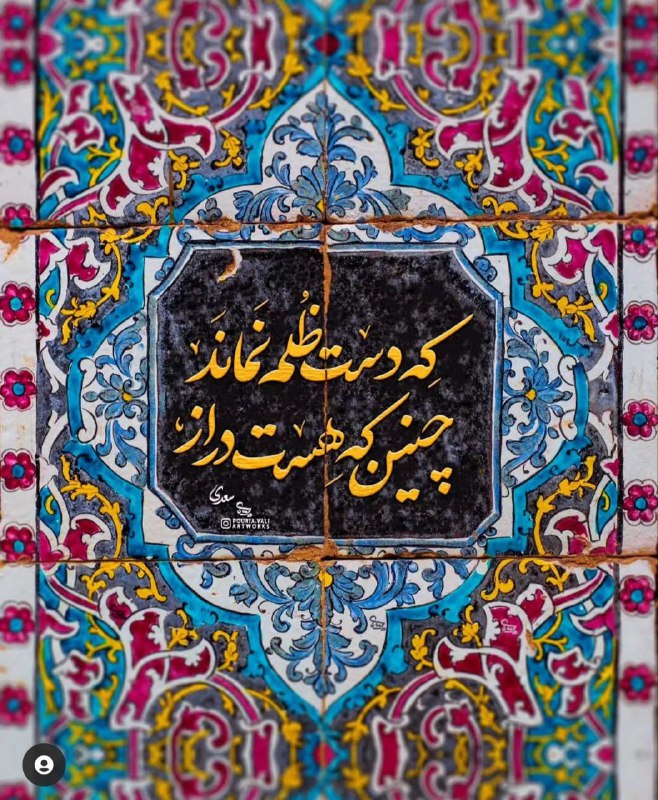 که دست ظلم نماند
چنین که هست دراز
سعدی
POURIA.VALI
ARTWORKS